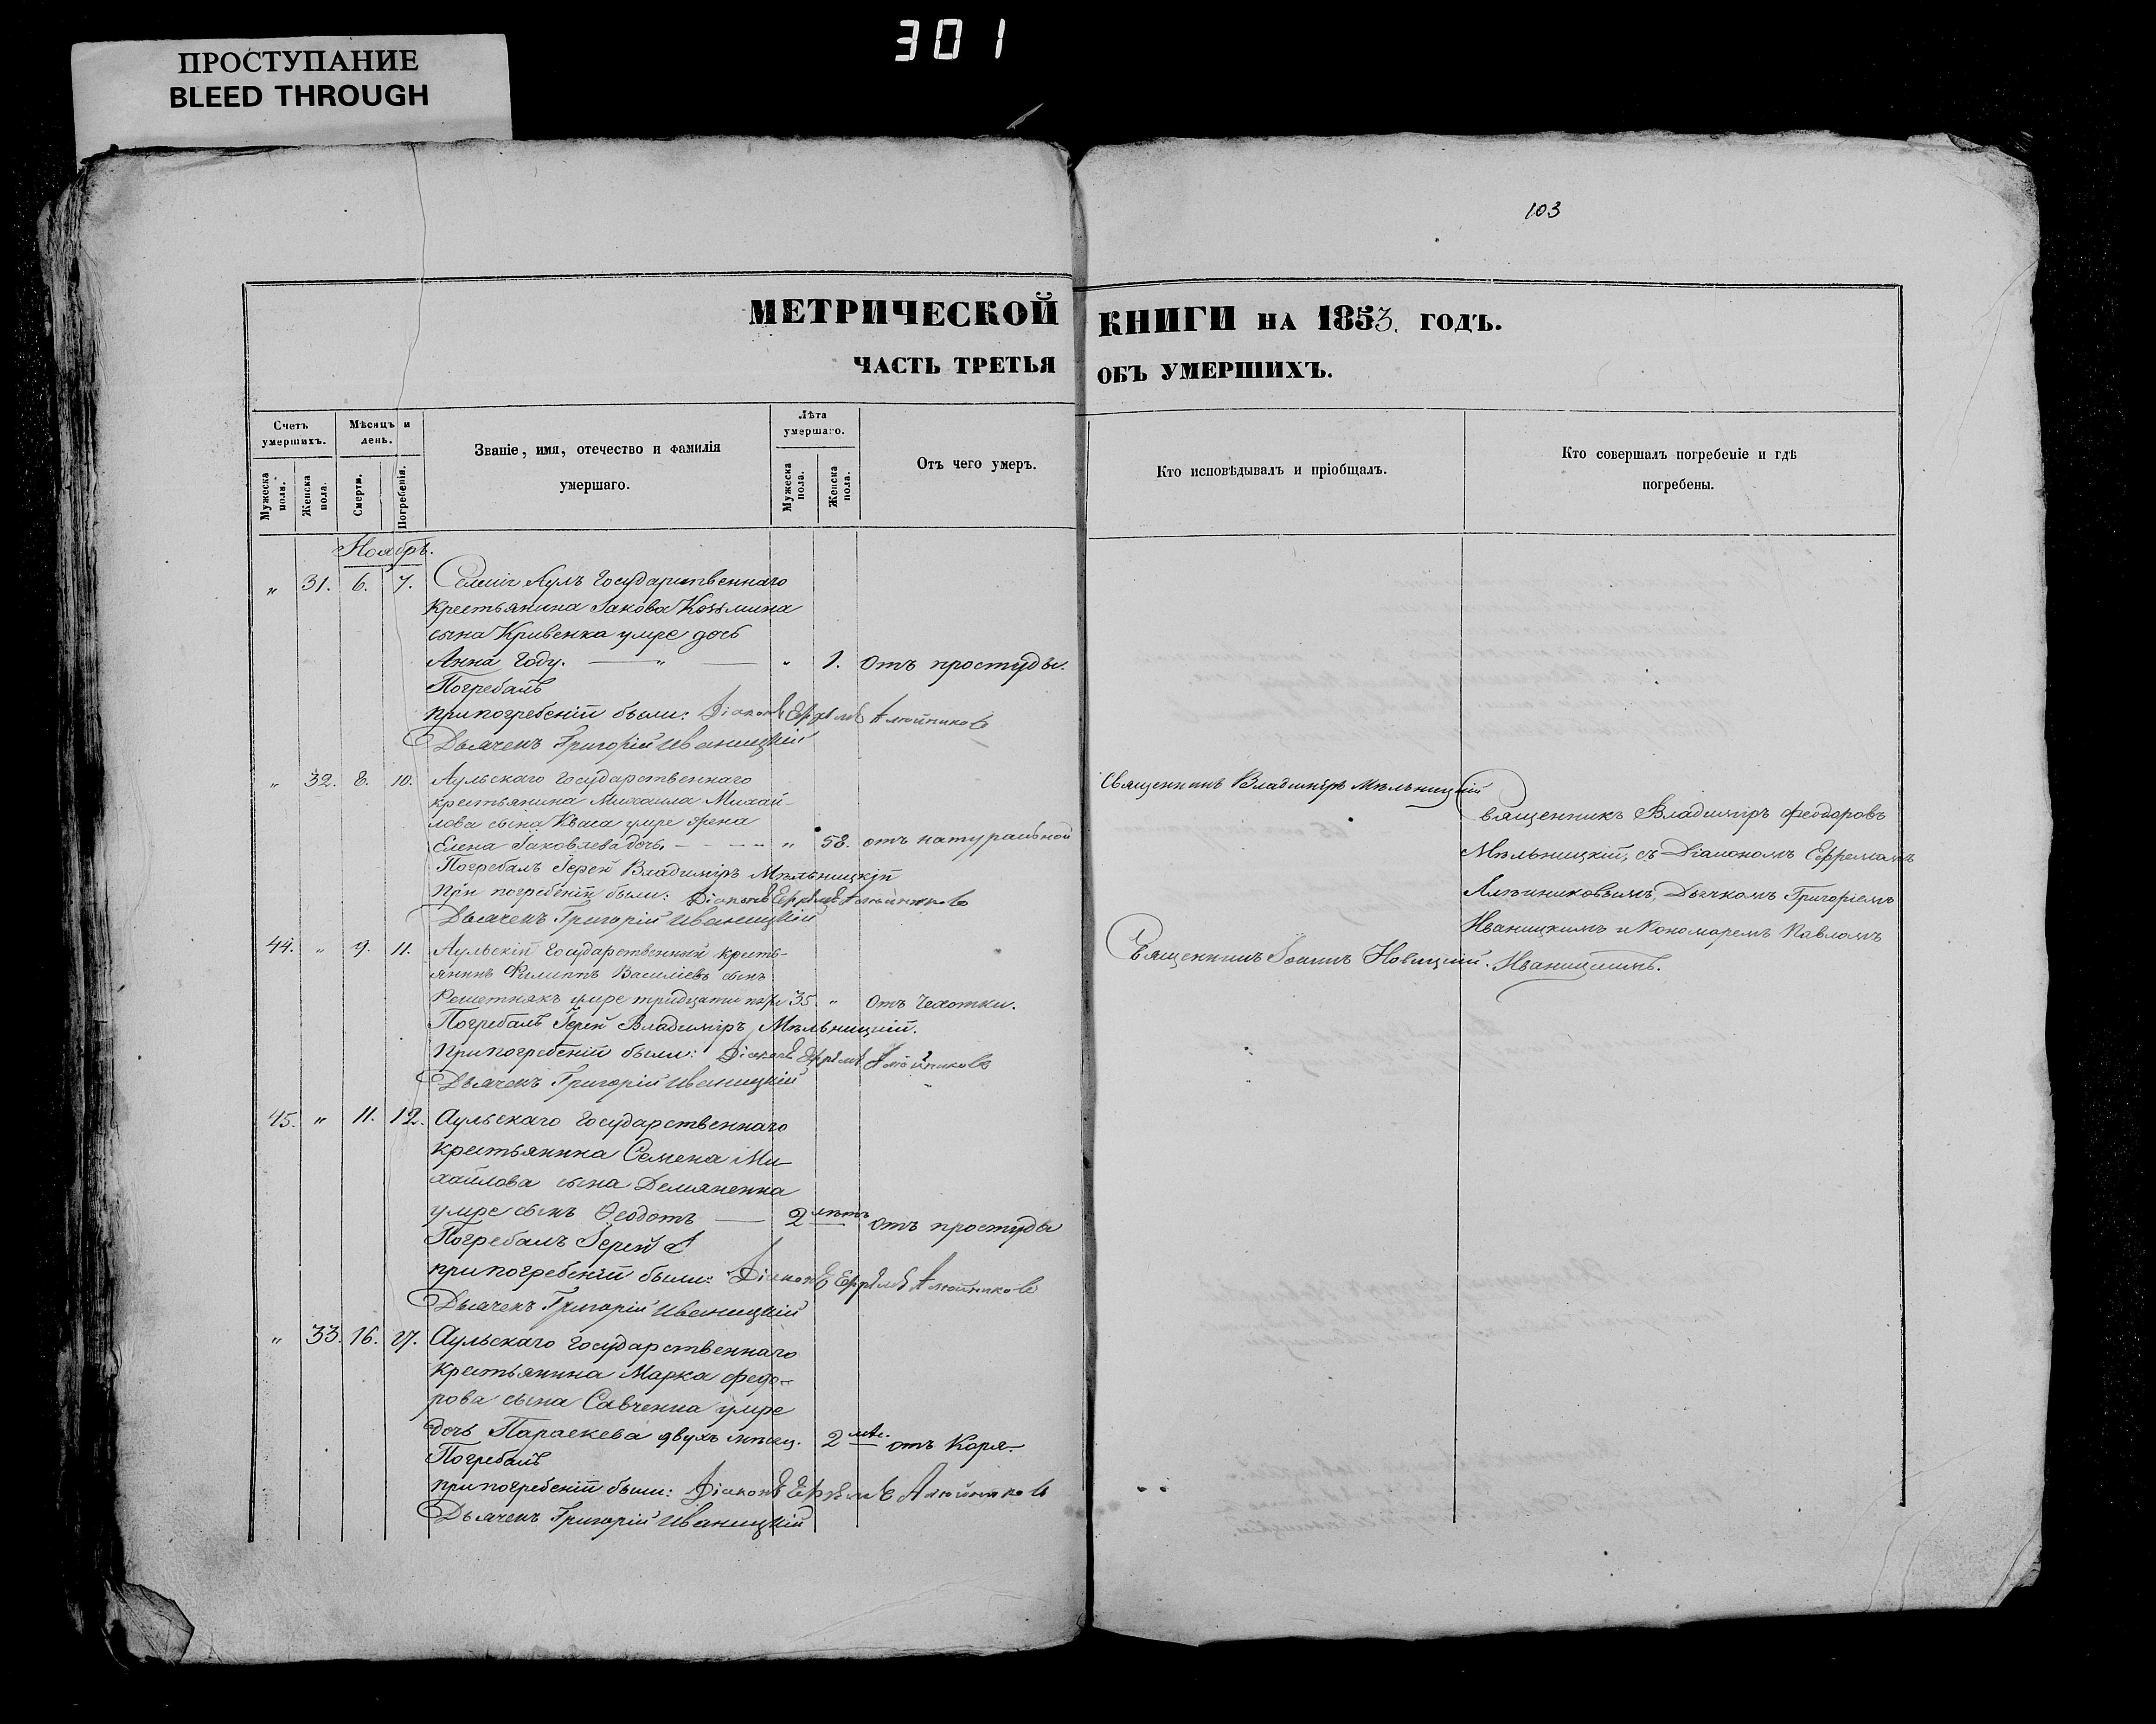 301
ПРОСТУПАНИЕ
BLEED THROUGH
103
МЕТРИЧЕСКОЙ КНИГИ НА 1853. ГОДЪ.
ЧАСТЬ ТРЕТЬЯ ОБЪ УМЕРШИХЪ.
Счетъ умершихъ.
Мѣсяцъ и день.
Званіе, имя, отечество и фамилія
умершаго.
Лѣта умершаго.
Отъ чего умеръ.
Кто исповѣдывалъ и пріобщалъ.
Кто совершалъ погребеніе и гдѣ
погребены.
Мужеска пола.
Женска пола.
Смерти.
Погребенія.
Мужеска пола.
Женска пола.
Ноябрь.
" 31. 6. 7. Аулъ Государственнаго
крестьянина Іакова Козмина
сына Кривенка умре дочь
Анна Году. — " — " 1. Отъ простуды.
Погребалъ
при погребеніи были: Діаконъ Ефремъ
Дьячекъ Григорій Иваницкій
" 32. 8. 10. Аульскаго Государственнаго
крестьянина Михаила Михай-
лова сына Кваса умре жена
Елена Іаковлева дочь. - - - - " 58. отъ натуральной
Погребалъ Іерей Владиміръ Мѣльницкій
При погребеніи были: Діаконъ Ефремъ
Дьячекъ Григорій Иваницкій
44. " 9. 11. Аульскій Государственный кресть-
янинъ Филиппъ Василіевъ сынъ
Решетнякъ умре тридцати 35. " Отъ Чехотки.
Погребалъ Іерей Владиміръ Мѣльницкій.
При погребеніи были: Діаконъ Ефремъ
Дьячекъ Григорій Иваницкій
45. " 11. 12. Аульскаго Государственнаго
крестьянина Семена Ми-
хайлова сына Демяненка
умре сынъ Ѳеодотъ — 2 лѣтъ отъ простуды
Погребалъ Іерей
при погребеніи были: Діаконъ Ефремъ
Дьячекъ Григорій Иваницкій
" 33. 16. 17. Аульскаго Государственнаго
крестьянина Марка Федо-
рова сына Савченка умре
дочь Параскева двухъ мѣсяц. 2 отъ Коря
Погребалъ
при погребеніи были: Діаконъ Ефремъ
Дьячекъ Григорій Иваницкій
Священникъ Владиміръ Мѣльницкій
Священникъ Іоаннъ Новицкій.
Священникъ Владиміръ Феодоровъ
Мѣльницкій, съ Діакономъ Ефремомъ
Дьячкомъ Григоріемъ
Иваницкимъ и Пономаремъ Павломъ
Иваницкимъ.